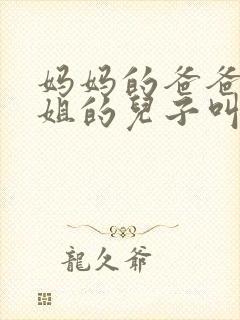 妈妈的爸爸
姐的兒子叫
龍久爺